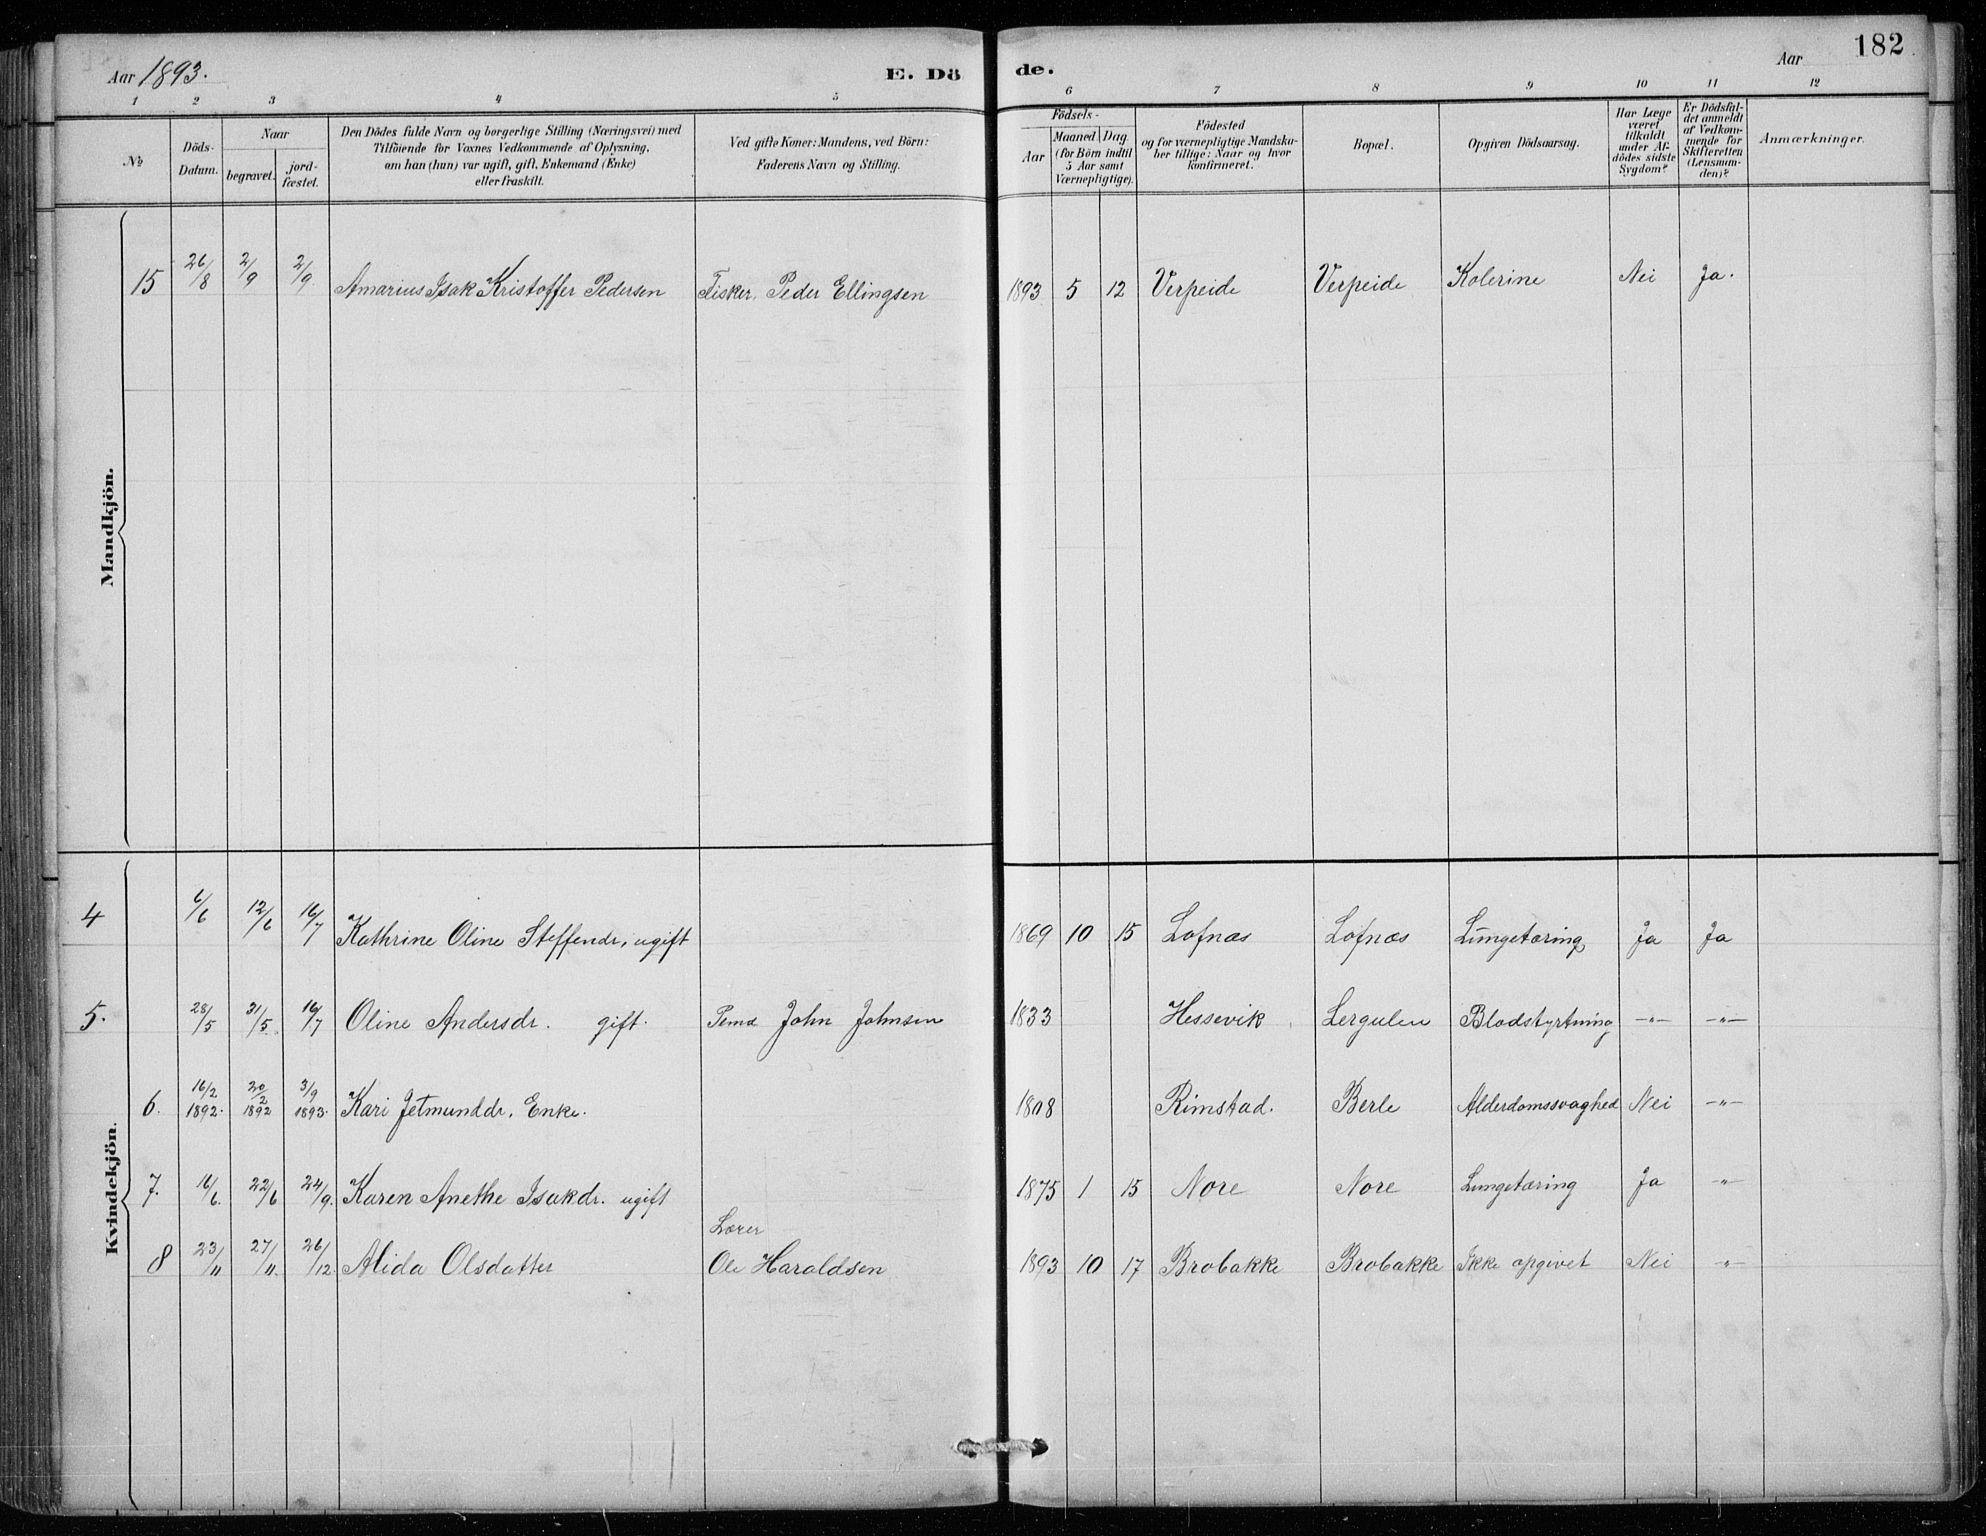 Aar 1893. E. Dö de. Aar 182
1 2 3 4 5 6 7 8 9 10 11 12
№
Döds-Datum.
Naar
begravet.
jord-fæstet.
Den Dödes fulde Navn og borgerlige Stilling (Næringsvei) med
Tilföiende for Voxnes Vedkommende af Oplysning,
om han (hun) var ugift, gift, Enkemand (Enke)
eller fraskilt.
Ved gifte Koner: Mandens, ved Börn:
Faderens Navn og Stilling.
Födsels-
Aar
Maaned Dag
(for Börn indtil
5 Aar samt
Værnepligtige).
Födested
og for værnepligtige Mandskа-
ber tillige: Naar og hvor
konfirmeret.
Bopæl.
Opgiven Dödsaarsag.
Har Læge
været
tilkaldt
under Af-
dödes sidste
Sygdom?
Er Dödsfal-
det anmeldt
af Vedkom-
mende for
Skifteretten
(Lensman-
den)?
Anmærkninger.
Mandkjön.
15 26/8 2/9 2/9 Amarius Isak Kristoffer Pedersen Fisker Peder Ellingsen 1893 5 12 Verpeide Verpeide Kolerine Nei Ja.
Kvindekjön.
4 6/6 12/6 16/7 Kathrine Oline Steffendr. ugift 1869 10 15 Lofnæs Lofnæs Lungetæring Ja Ja
5. 28/5 31/5 16/7 Oline Andersdr. gift. Pmd John Johnsen 1833 Hessevik Lergulen Blodstyrtning —„— —„—
6. 16/2 1892. 20/2 1892 3/9 1893. Kari Jetmunddr. Enke. 1808 Rimstad. Berle Alderdomssvaghed Nei —„—
7. 16/6. 22/6 24/9. Karen Anethe Isakdr. ugift 1875 1 15 Nore Nore Lungetæring Ja —„—
8 23/11 27/11. 26/12. Alida Olsdatter Lærer Ole Haraldsen 1893 10 17 Brobakke Brobakke Ikke opgivet Nei —„—